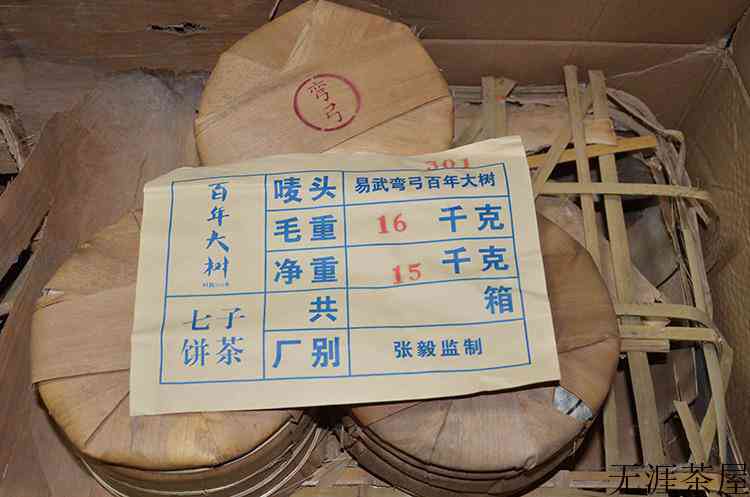 弯弓
301
百年大树
唛头 易武弯弓百年大树
毛重 16 千克
净重 15 千克
七子饼茶
共 箱
厂别 张毅监制
无涯茶屋